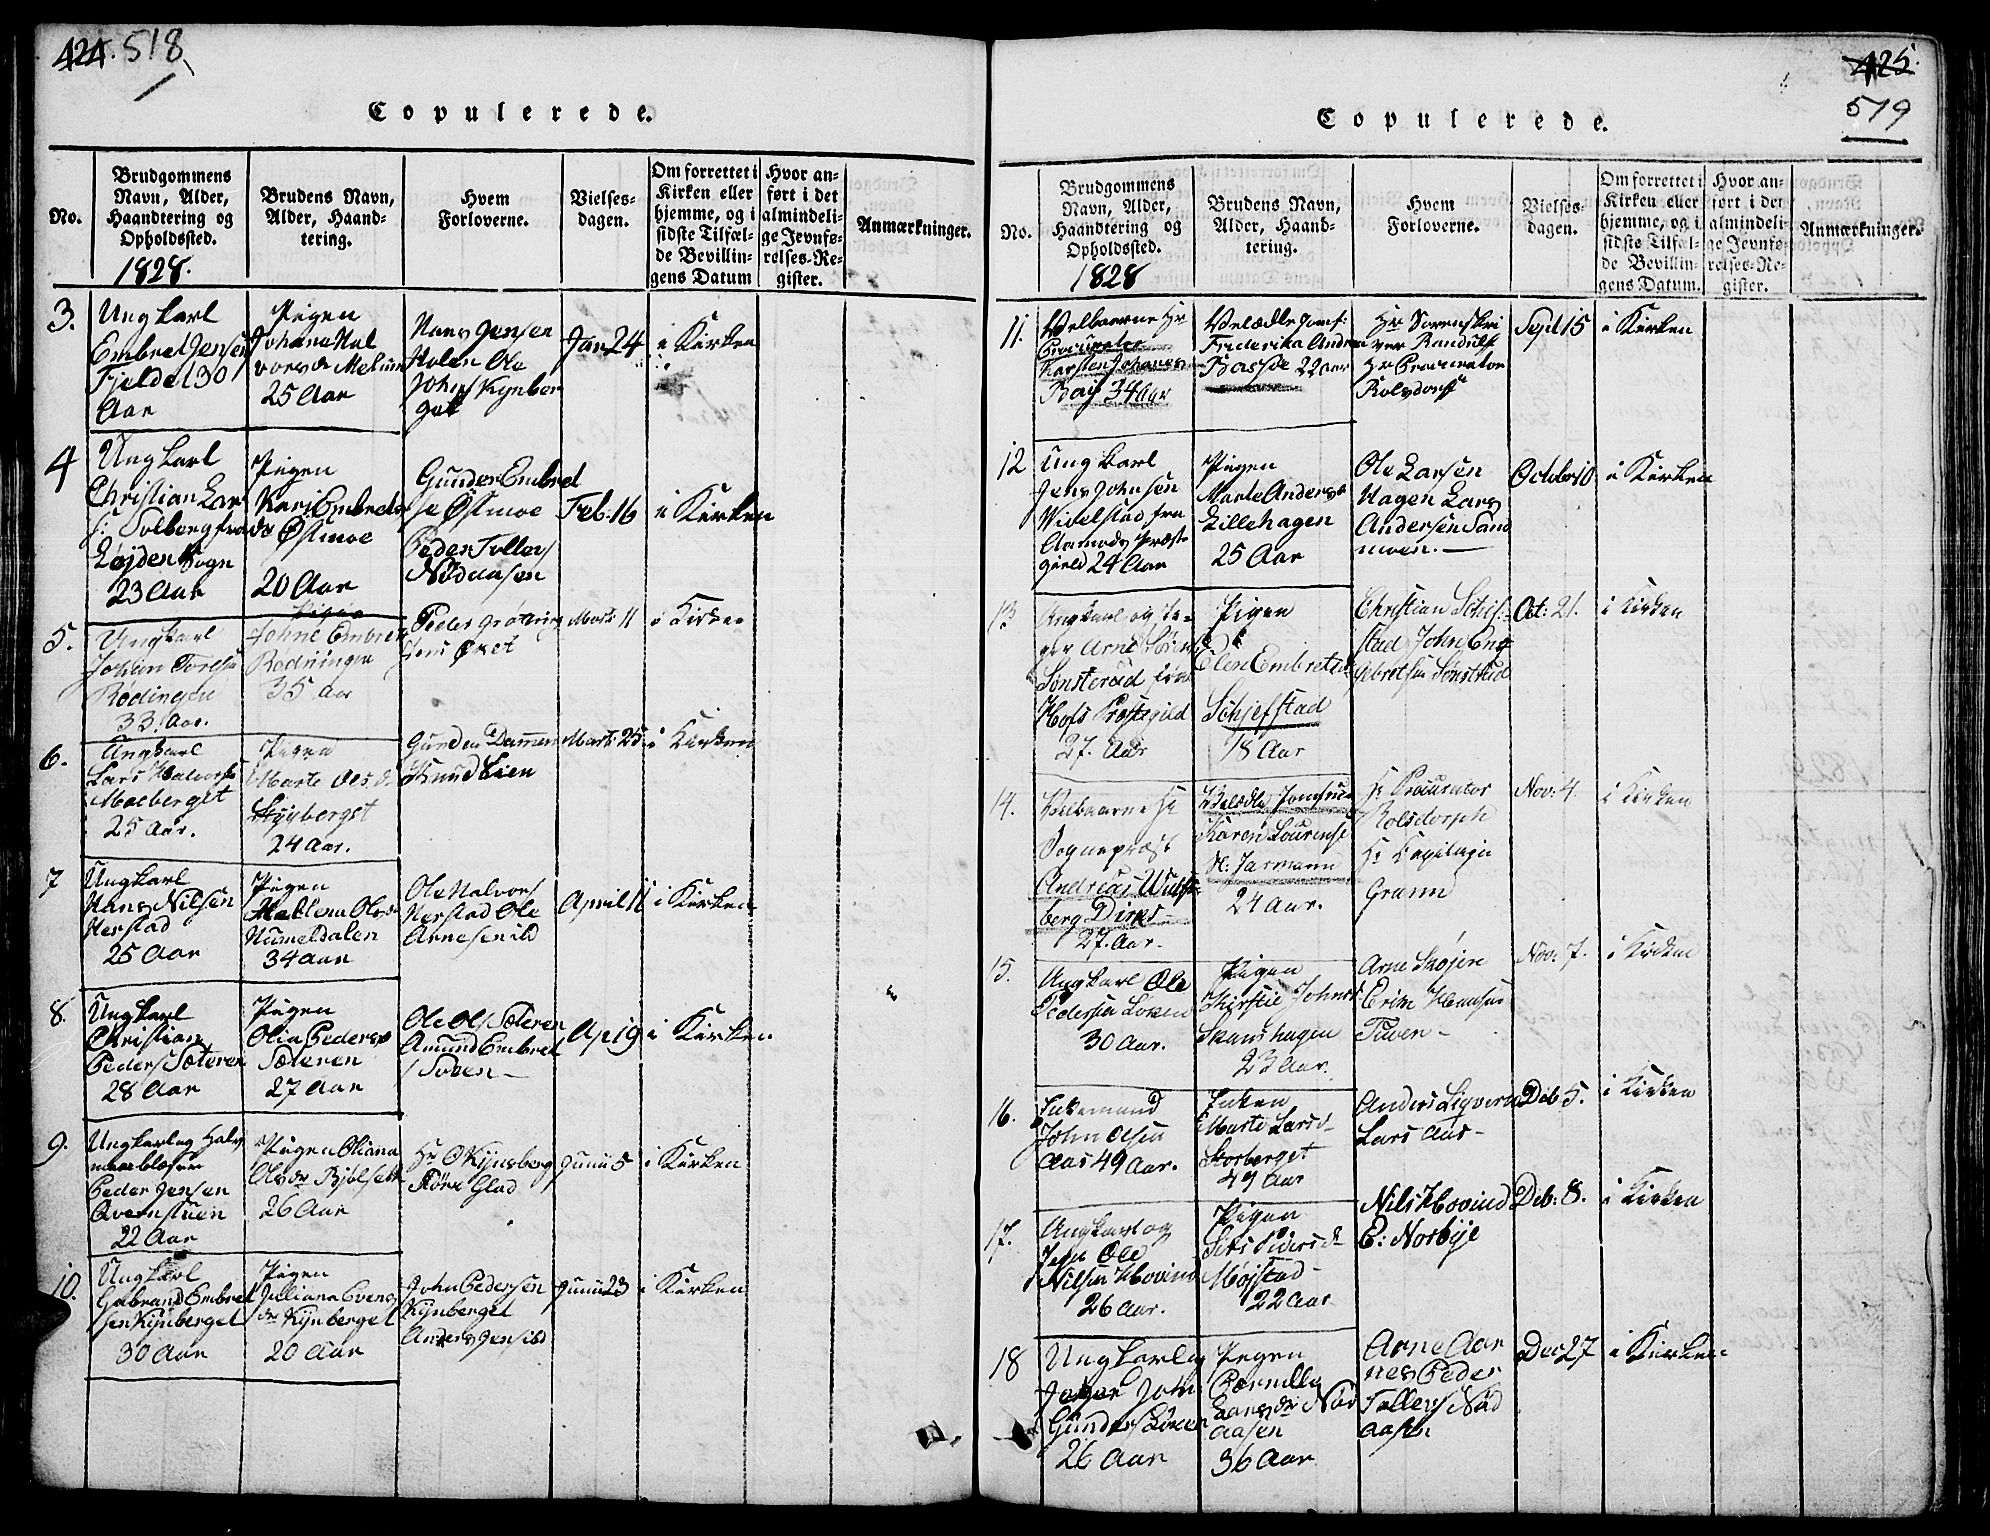 424. 518
Copulerede.
No.
Brudgommens
Navn, Alder,
Haandtering og
Opholdssted.
1828.
Brudens Navn,
Alder, Haand-
tering.
Hvem
Forloverne.
Vielses-
dagen.
Om forrettet i
Kirken eller
hjemme, og i
sidste Tilfæl-
de Bevillin-
gens Datum
Hvor an-
ført i det
almindeli-
ge Jevnfø-
relses-Re-
gister.
Anmærkninger.
3.
Ungkarl
Embret Jensen
Fjeldet 30
Aar
Pigen
Johane Hal
vorsdr Melum
25 Aar
Hans Jensen
Holen Ole
Johns Kynber
get
Jan 24
i Kirken
4
Ungkarl
Christian Lar
s: Solberg fra
Løjden Sogn
23 Aar
Pigen
Kari Embrets
dr Østmoe
20 Aar
Gunder Embret
se Østmoe
Peder Tollefs
Nødaasen
Feb: 16
i Kirken
5.
Ungkarl
Johan Toresen
Rødingen
33. Aar.
Pigen
Johne Embret
Rødningen
35 Aar
Peder Grøtting
Jens Øket
Marts 11
i Kirken
6.
Ungkarl
Lars Halvorsen
Moeberget
25 Aar.
Pigen
Marte Olsd.
Skyberget
24 Aar.
Gunder Dammen
Knud Lien
Marts 25
i Kirken
7
Ungkarl
Hans Nilsen
Herstad
25 Aar
Pigen
Mallena Olsdr
Humeldalen
34 Aar
Ole Halvors
Herstad Ole
Arnesen ild
April 11
i Kirken
8.
Ungkarl
Christian
Peders Sæteren
28 Aar
Pigen
Olia Pedersdr
Sæteren
27 Aar
Ole Ols Sæteren
Amund Embret
s Soeen
Ap 19
i Kirken
9.
Ungkarl og Halv
Peder Jensen
Ovenstuen
22 Aar
Pigen Oliana
Olsdr Bjølset
26 Aar
Hr O Kynsberg
Tore Glad
Junii 5
i Kirken
10.
Ungkarl
Gubrand Embret
sen Kynberget
30 Aar
Pigen
Juliana Evens
dr Kynberget
20 Aar
John Pedersen
Kynberget
Anders Jensen
Junii 23
i Kirken
425.
519
Copulerede.
No.
Brudgommens
Navn, Alder,
Haandtering og
Opholdssted.
1828
Brudens Navn,
Alder, Haand-
tering.
Hvem
Forloverne.
Vielses-
dagen.
Om forrettet i
Kirken eller
hjemme, og i
sidste Tilfæl-
de Bevillin-
gens Datum.
Hvor an-
ført i det
almindeli-
ge Jevnfø-
relses-Re-
gister.
Anmærkninger.
11.
Velbaarne Hr
Procurator
Karsten Johannes
Bay 34 Aar
Velædle Jomf:
Frederika Andrea
Basse 22 Aar
Hr Sorenskri
ver Randulf
Hr Procurator
Rolsdorf
Sept 15
i Kirken
12
Ungkarl
Jens Johnsen
Widelstad fra
Aamods Præst
gield 24 Aar
Pigen
Marte Andersdr
Lillehagen
25 Aar
Ole Larsen
Hagen Lars
Andersen Sand
moen.
October 10
i Kirken
13
Ungkarl og Jæ-
ger Arne
Sønsterud fra
Hofs Præstegield
27. Aar
Pigen
Elen Embretsd.
Schjefstad
18 Aar
Christian Schief-
stad John Eng
ebretsen Sønstrud
Oct: 21.
i Kirken
14.
Velbaarne Hr
Sognepræst
Andreas Wulfs-
berg Dirks
27. Aar
Velædle Jomfrue
Karen Lourense
N: Jarmann
24 Aar.
Hr Procurator
Rolsdorph
Hr Capitain
Gramm
Nov: 4
i Kirken
15.
Ungkarl Ole
Pedersen Løken
30 Aar.
Pigen
Kirstie Johnsd
Skaushagen
23 Aar.
Arne Skøjen
Erik Hansen
Tiven
Nov: 7.
i Kirken
16.
Enkemand
John Olsen
Aas 49 Aar.
Enken
Marte Larsd.
Storberget
49 Aar
Anders Ligvern
Lars Aas
Deb 5.
i Kirken
17.
Ungkarl og
Jæger Ole
Nilsen Hovind
26 Aar.
Pigen
Siri Pedersd
Mojstad
22 Aar
Nils Hovind
E: Norbye
Deb: 8.
i Kirken
18
Ungkarl og
Jæger John
Gunders Løken
26 Aar
Pigen
Pernille
Larsdr Nød
aasen
36 Aar
Arne Aar
nes Peder
Tollefs Nød
aasen
Dec 27
i Kirken